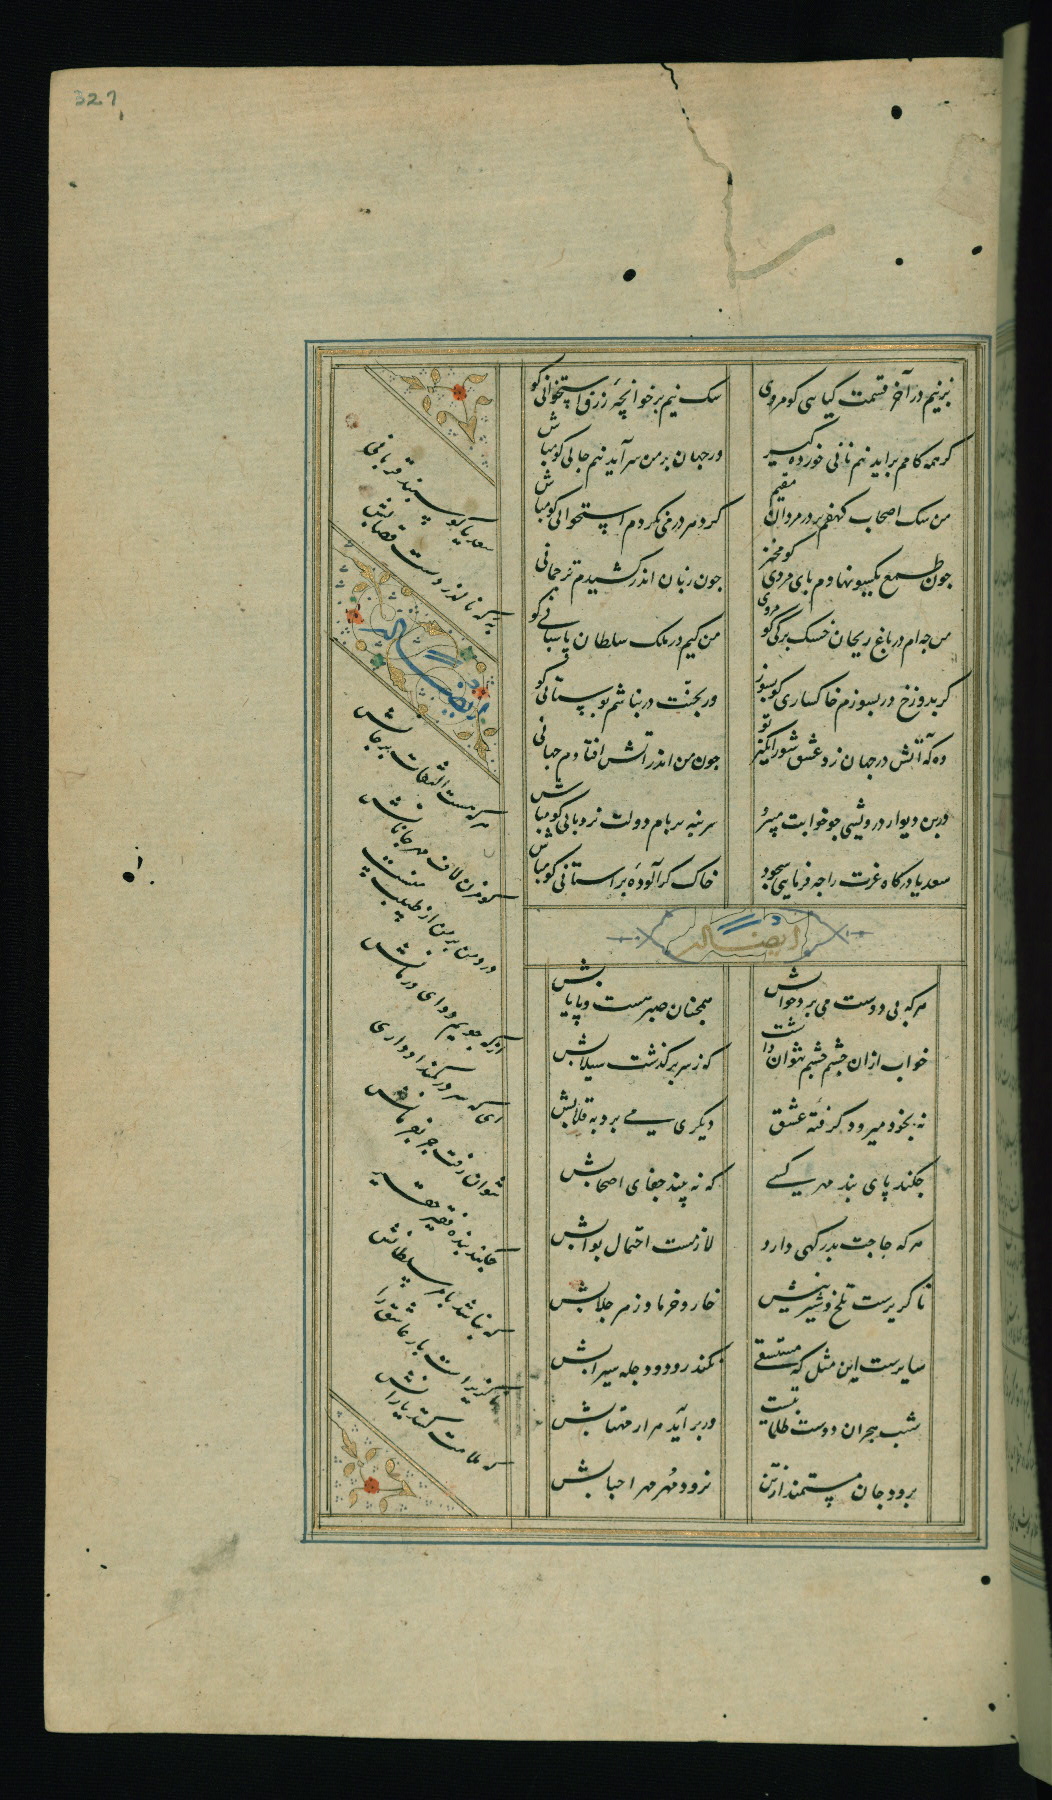 327
نزنیم در آخر قسمت گیاهی گو مروی
سک نیم بر خوانچهٔ رزق استخوانی گو مباش
کر همه کامم براید نیم نانی خورده گیر
ور جهان بر من سر آید نیم جانی گو مباش
من سک اصحاب کهفم بر در مردان مقیم
کرد هر در می نکردم استخوانی گو مباش
چون طمع یکسو نهادم پای مردی گو مخیز
چون زبان اندر کشیدم ترجمانی
من چه ام در باغ ریحان خشک برگی گو مروی
من کیم در ملک سلطان پاسبانی گو
کر بدوزخ در بسوزم خاکساری گو بسوز
ور بجنت در نباشم بوستانی گو
وه که آتش در جهان زد عشق شورانگیز تو
چون من اندر آتش افتادم جهانی
در بن دیوار درویشی چو خوابت میبرد
سر نبه بر بام دولت نردبانی گو مباش
سعدیا درکاه عزت را چه فرمایی سجود
خاک کرد آلوده بر استانی گو مباش
ایضاله
هر که بی دوست می برد خوابش
همچنان صبر هست و پایابش
خواب ازان چشم چشم نتوان داشت
که ز سر بر کذشت سیلابش
نه بخود میرود کرفتهٔ عشق
دیکری می برد به قلابش
چکند پای بند مهر کسے
که نه بیند جفای اصحابش
هر که حاجت بدرکهی دارد
لازمست احتمال بوابش
ناکزیرست تلخ و شیرینش
خار و خرما و زهر جلابش
سایرست این مثل که مستسقی
نکند رود دجله سیرابش
شب هجران دوست ظلمانیست
ور برآید هزار مهتابش
برود جان مستمند از تن
نرود مهر مهر احبابش
سعدیا کوسپند قربانی
به که نالد ز دست قصابش
ایضاله
هر که هست التفات بر جانش
کو مزن لاف مهر جانانش
درد من بر من از طبیب منست
از که جویم دوای درمانش
ای که سر در کمند او داری
نتوان رفت جز بفرمانش
چکند بنده فقیر حقیر
که نباشد بامر سلطانش
ناکزیر است یار عاشق را
که ملامت کنند یارانش